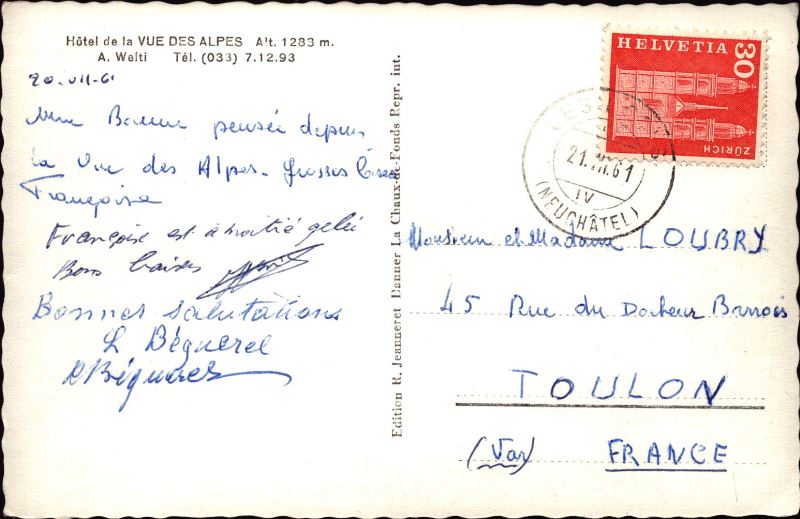 Hôtel de la VUE DES ALPES Alt. 1283 m.
A. Welti Tél. (033) 7.12.93
20-VII-61
Une Bonne pensée depuis
la Vue des Alpes. Grosses bises
Françoise
Françoise est à moitié gelée
Bons baisers
Bonnes salutations
L Béguerel
Edition R. Jeanneret Danner La Chaux-de-Fonds Repr. int.
HELVETIA 30
ZÜRICH
21.VII.61
IV
(NEUCHÂTEL)
Monsieur et Madame LOUBRY
45 Rue du Docteur Barrois
TOULON
(Var) FRANCE